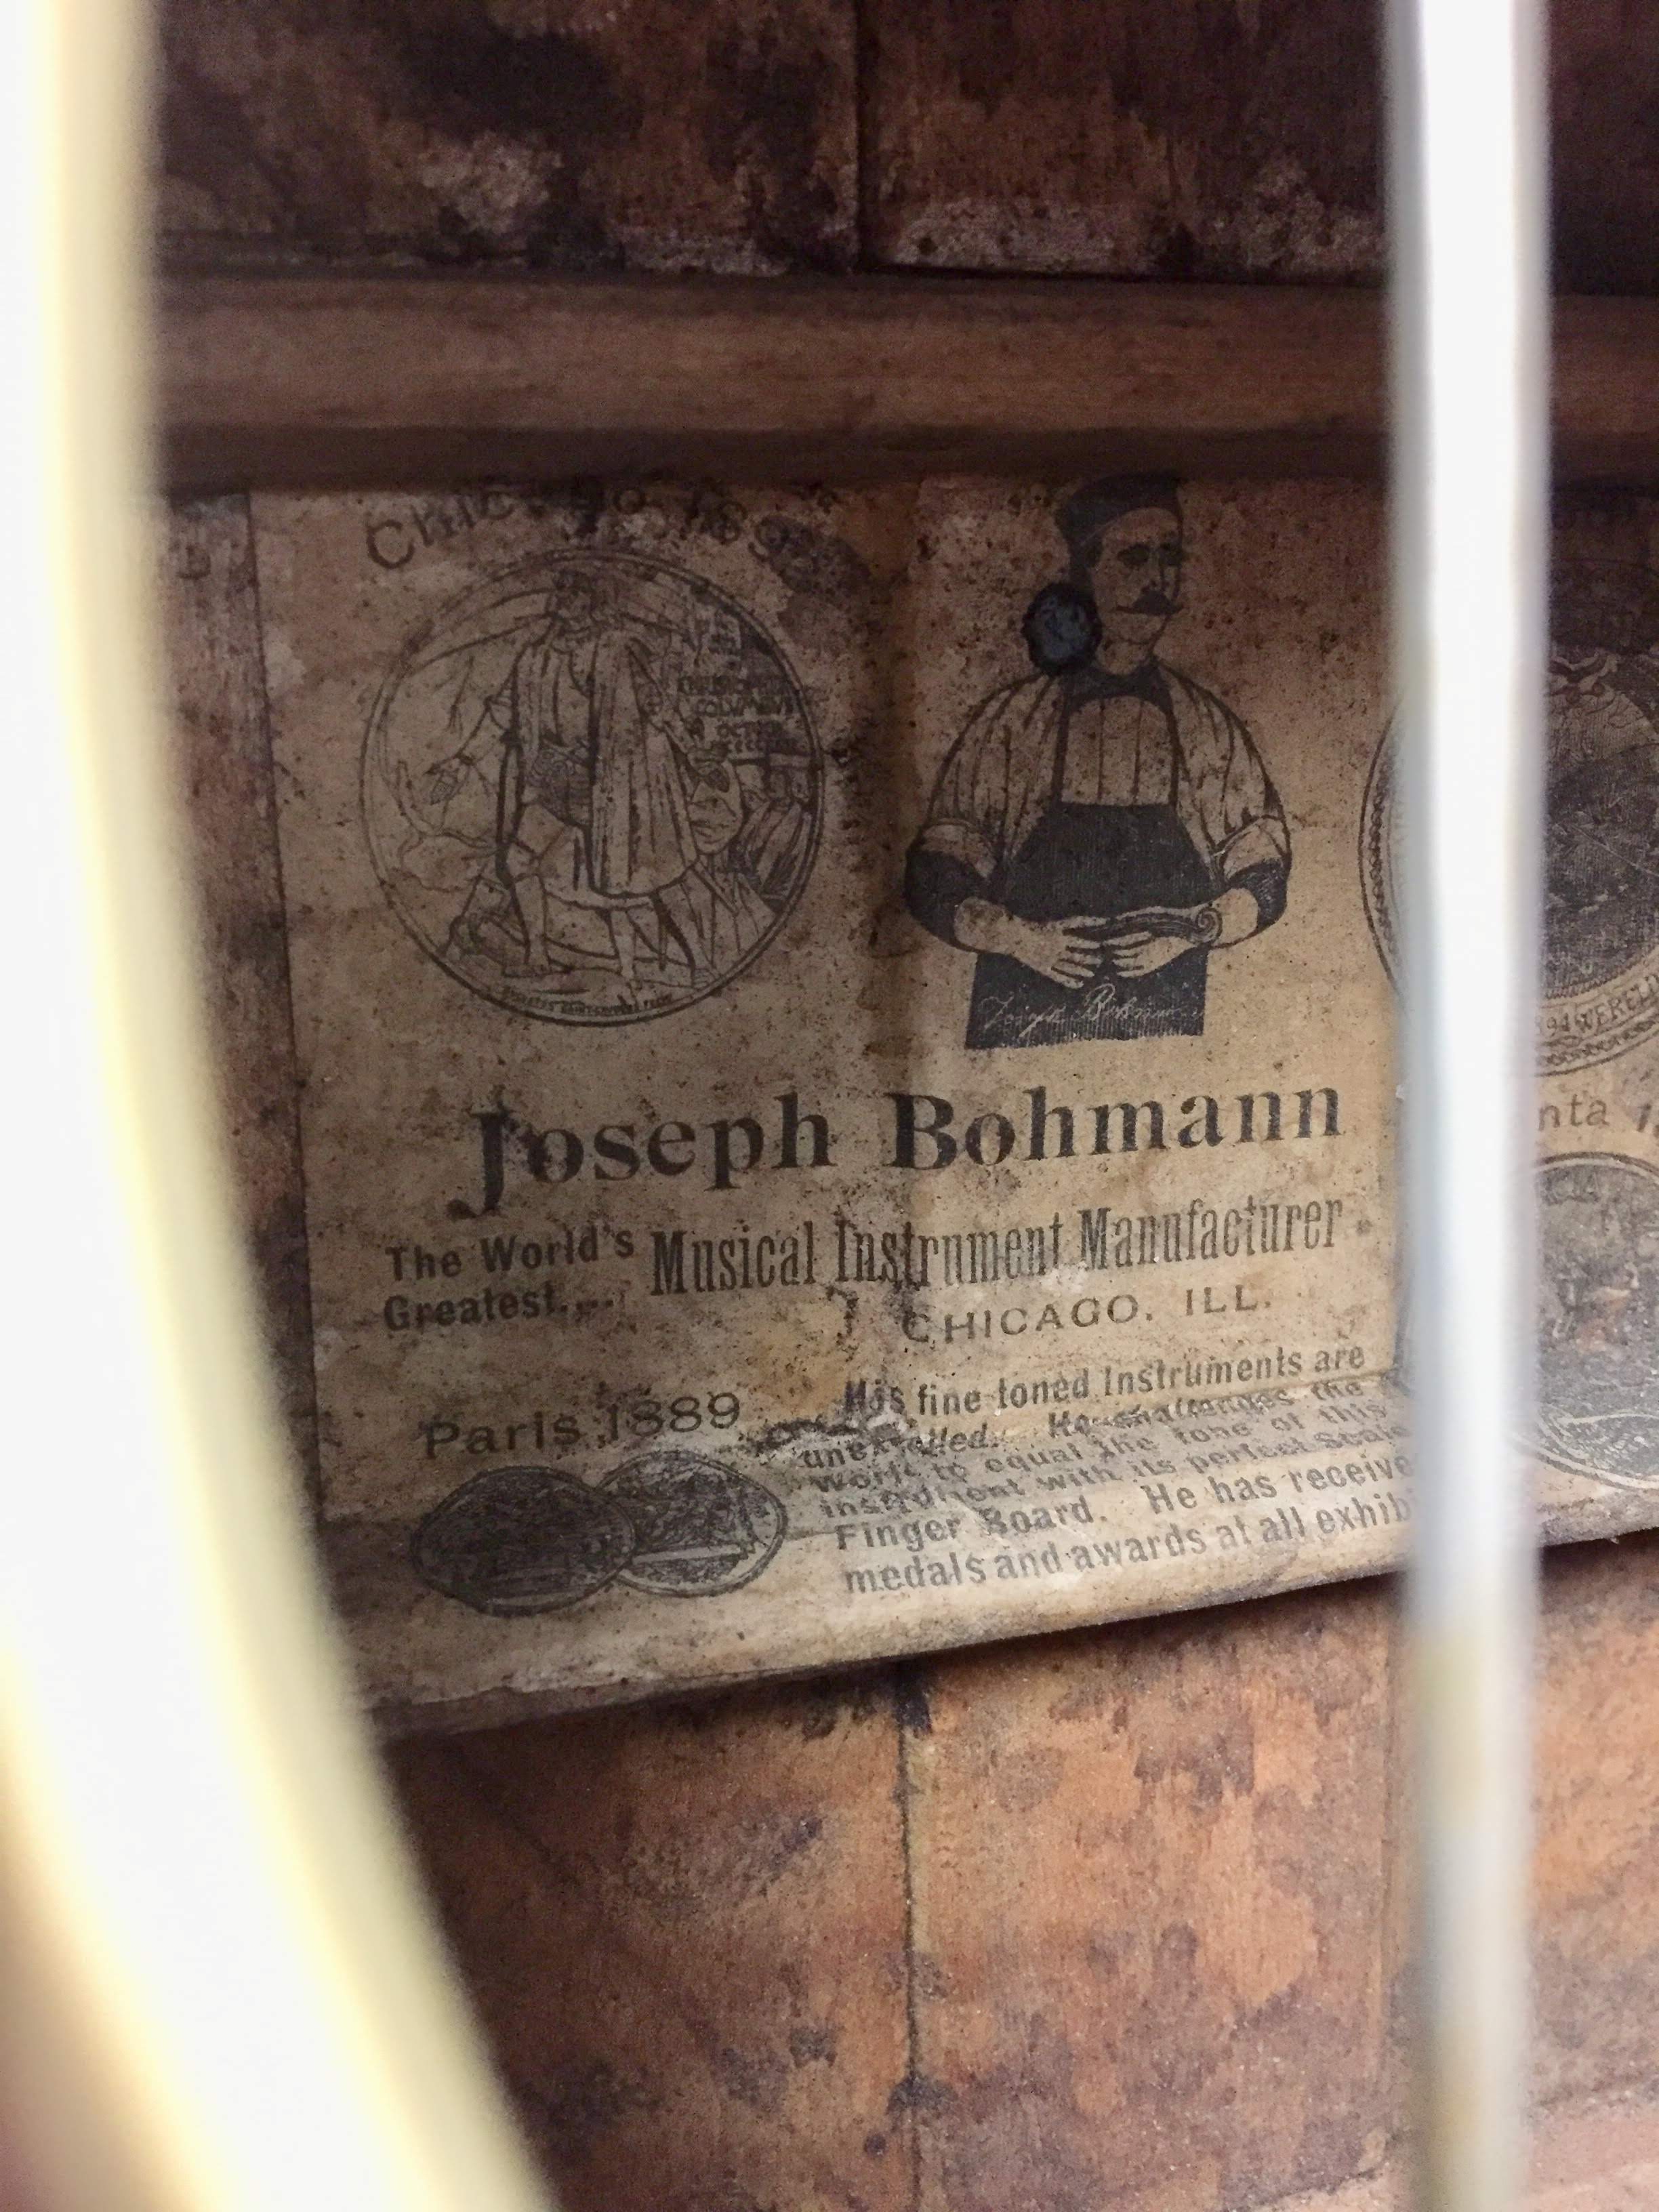 Joseph Bohmann
CHRISTOPHER
COLUMBUS
OCT
1894 WERELD
Joseph Bohmann
The World's Greatest.... Musical Instrument Manufacturer
CHICAGO, ILL.
nta
Paris 1889
His fine toned Instruments are
unexcelled. He challenges the
World to equal the tone of this
instrument with its perfect Scale
Finger Board. He has receive
medals and awards at all exhib